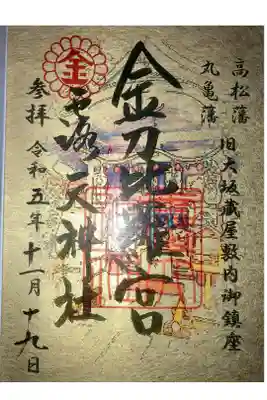 高松藩
丸亀藩
旧大坂蔵屋敷内御鎮座
金刀比羅宮
露天神社
金
参拝 令和五年十一月十九日